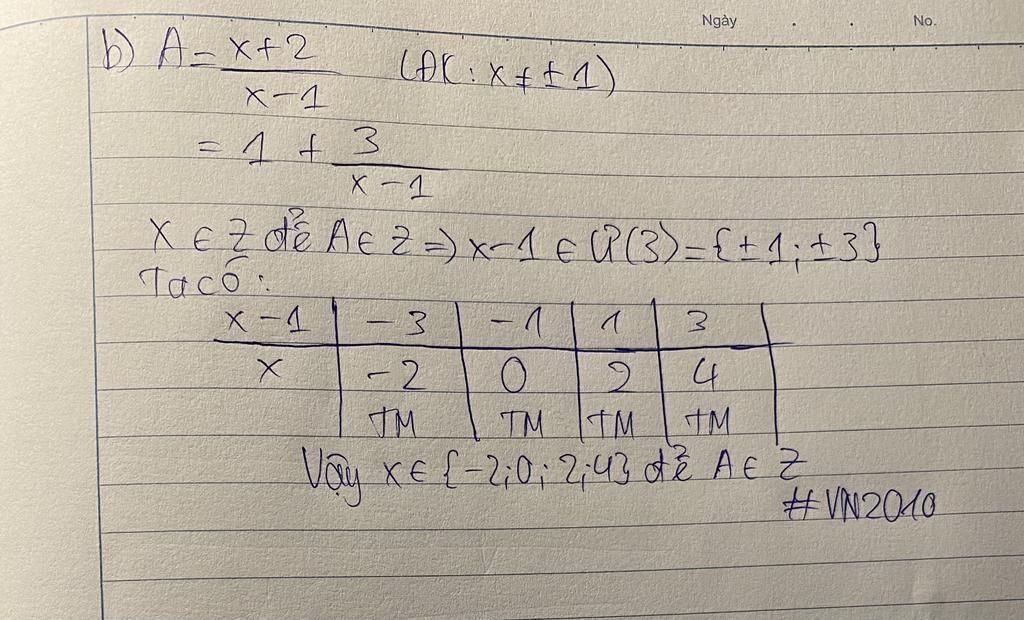 Ngày . . No.
b) A = x+2 / x-1 (ĐK: x ≠ ±1)
= 1 + 3 / x-1
X ∈ Z để A ∈ Z => x-1 ∈ Ư(3) = {±1; ±3}
Ta có:
x-1 | -3 | -1 | 1 | 3
x | -2 | 0 | 2 | 4
TM | TM | TM | TM
Vậy x ∈ {-2; 0; 2; 4} để A ∈ Z
#VN2010